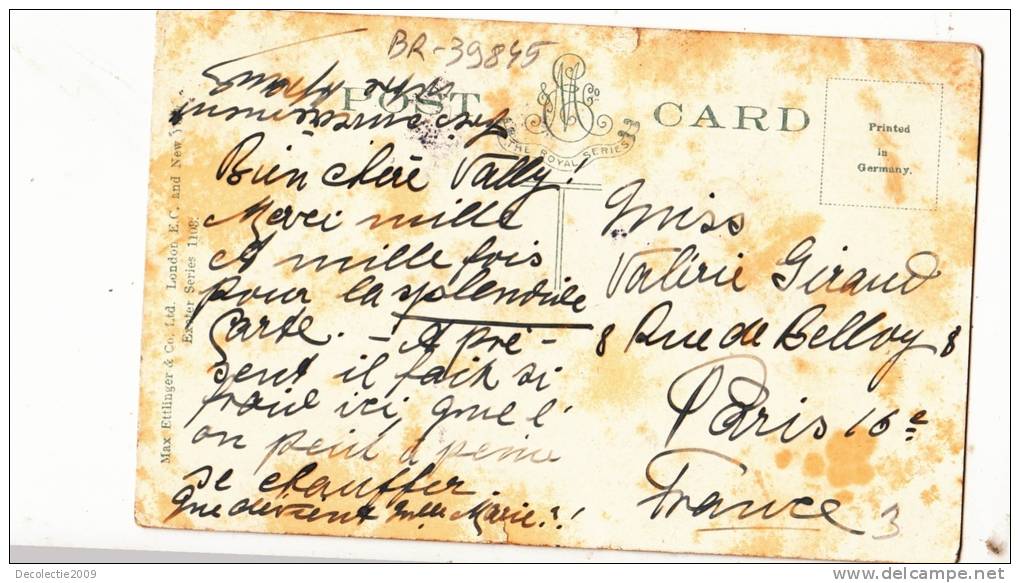 BR-39845
POST CARD
THE ROYAL SERIES
Printed
in
Germany.
Max Ettlinger & Co. Ltd. London E.C. and New
Exeter Series 1108.
Bien chère Vally!
Merci mille
et mille fois
pour la splendide
carte. - A pré-
sent il fait si
froid ici, que l'
on peut à peine
se chauffer
Que devient Mlle Marie?!
Miss
Valérie Giraud
8 Rue de Belloy 8
Paris 16e
France
3
Decolectie2009
delcampe.net